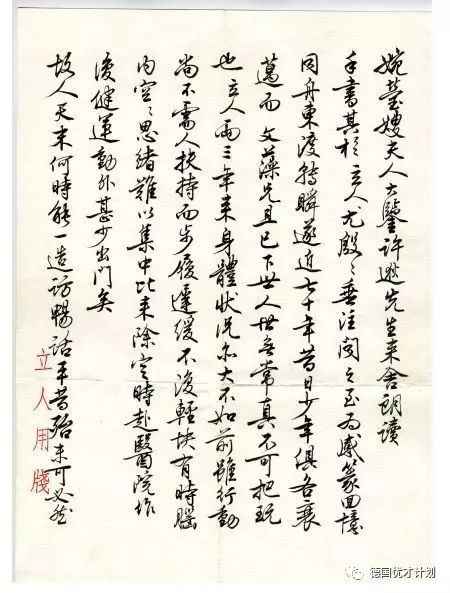 婉瑩嫂夫人大鑒許先生来舍朗讀
手書其於立人尤殷〻垂注聞之至為感篆回憶
同舟東渡轉瞬遂近七十年昔日少年俱各衰
邁而 文藻兄且已下世人世無常真不可把玩
也立人兩三年来身體狀况亦大不如前雖行動
尚不需人扶持而步履遲緩不復輕快有時腦
内空〻思緒難以集中比来除定時赴醫院作
復健運動外甚少出門矣
故人天末何時能一造訪暢話平昔殆未可必然
立人用牋
德国优才计划